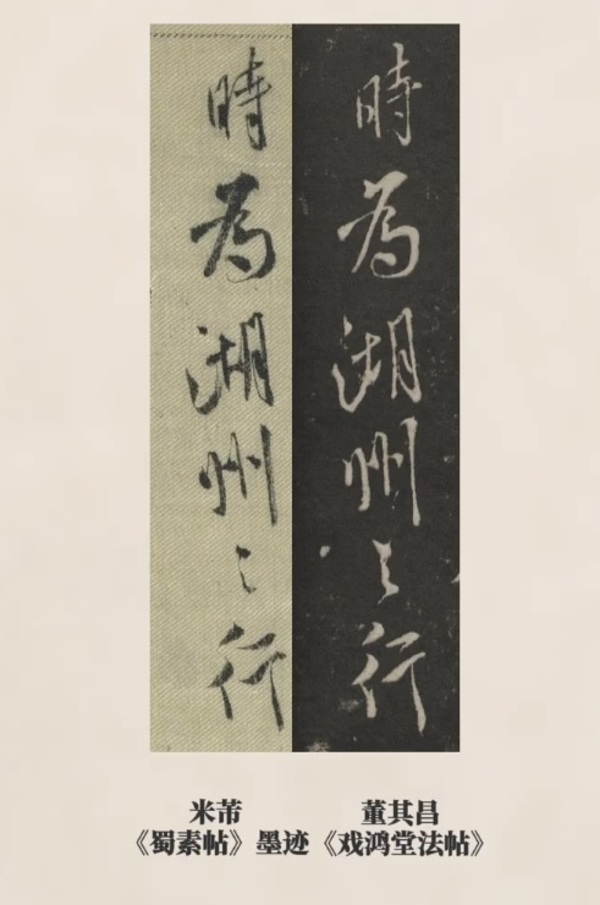 時為湖州之行
時為湖州之行
米芾
《蜀素帖》墨迹
董其昌
《戏鸿堂法帖》